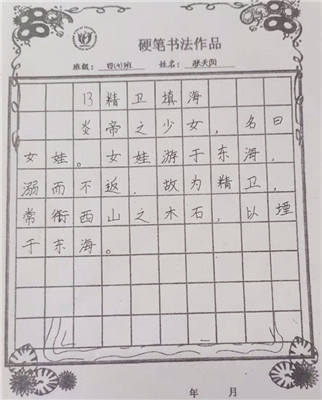 硬笔书法作品
班级：四(4)班 姓名：
13 精卫填海
炎帝之少女，名曰
女娃。女娃游于东海，
溺而不返，故为精卫，
常衔西山之木石，以堙
于东海。
年 月